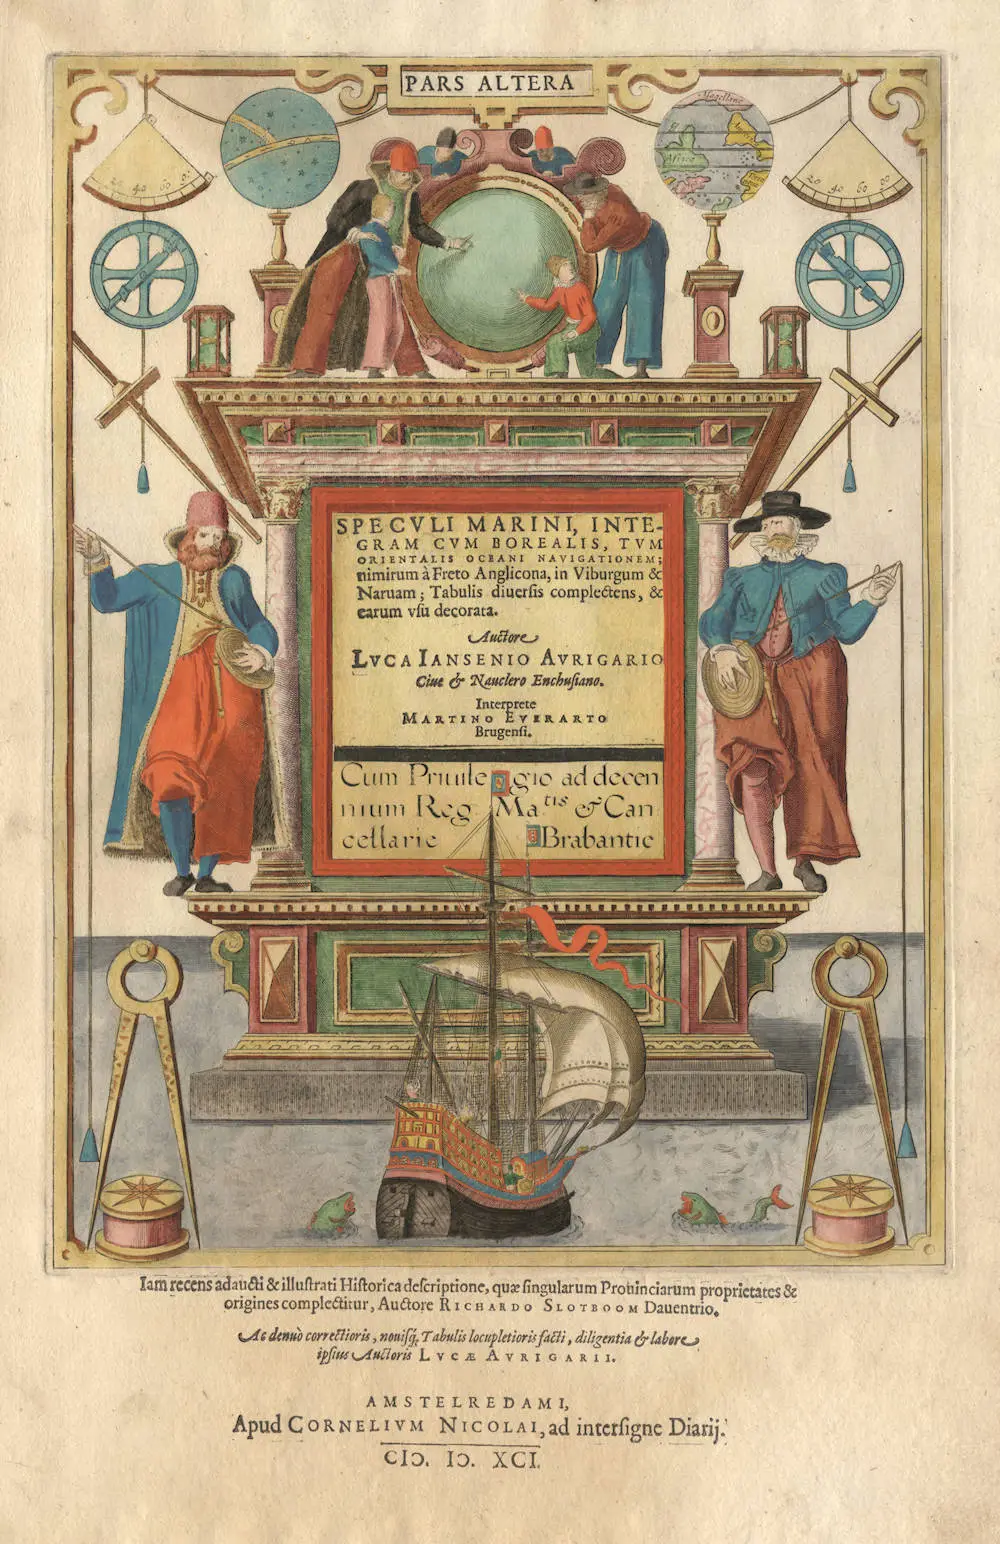 PARS ALTERA
Magellane
Africa
20 40 60 80
20 40 60 80
SPECVLI MARINI, INTE-
GRAM CVM BOREALIS, TVM
ORIENTALIS OCEANI NAVIGATIONEM;
nimirum à Freto Anglicona, in Viburgum &
Naruam; Tabulis diuersis complectens, &
earum vsu decorata.
Auctore
LVCA IANSENIO AVRIGARIO
Ciue & Nauclero Enchusiano.
Interprete
MARTINO EVERARTO
Brugensi.
Cum Priuilegio ad decen
nium Reg. Ma.tis & Can
cellarie Brabantie
Iam recens adaucti & illustrati Historica descriptione, quæ singularum Prouinciarum proprietates &
origines complectitur, Auctore RICHARDO SLOTBOOM Dauentrio.
Ac denuò correctioris, nouisq; Tabulis locupletioris facti, diligentia & labore
ipsius Auctoris LVCÆ AVRIGARII.
AMSTELREDAMI,
Apud CORNELIVM NICOLAI, ad intersigne Diarij.
CIↃ. IↃ. XCI.